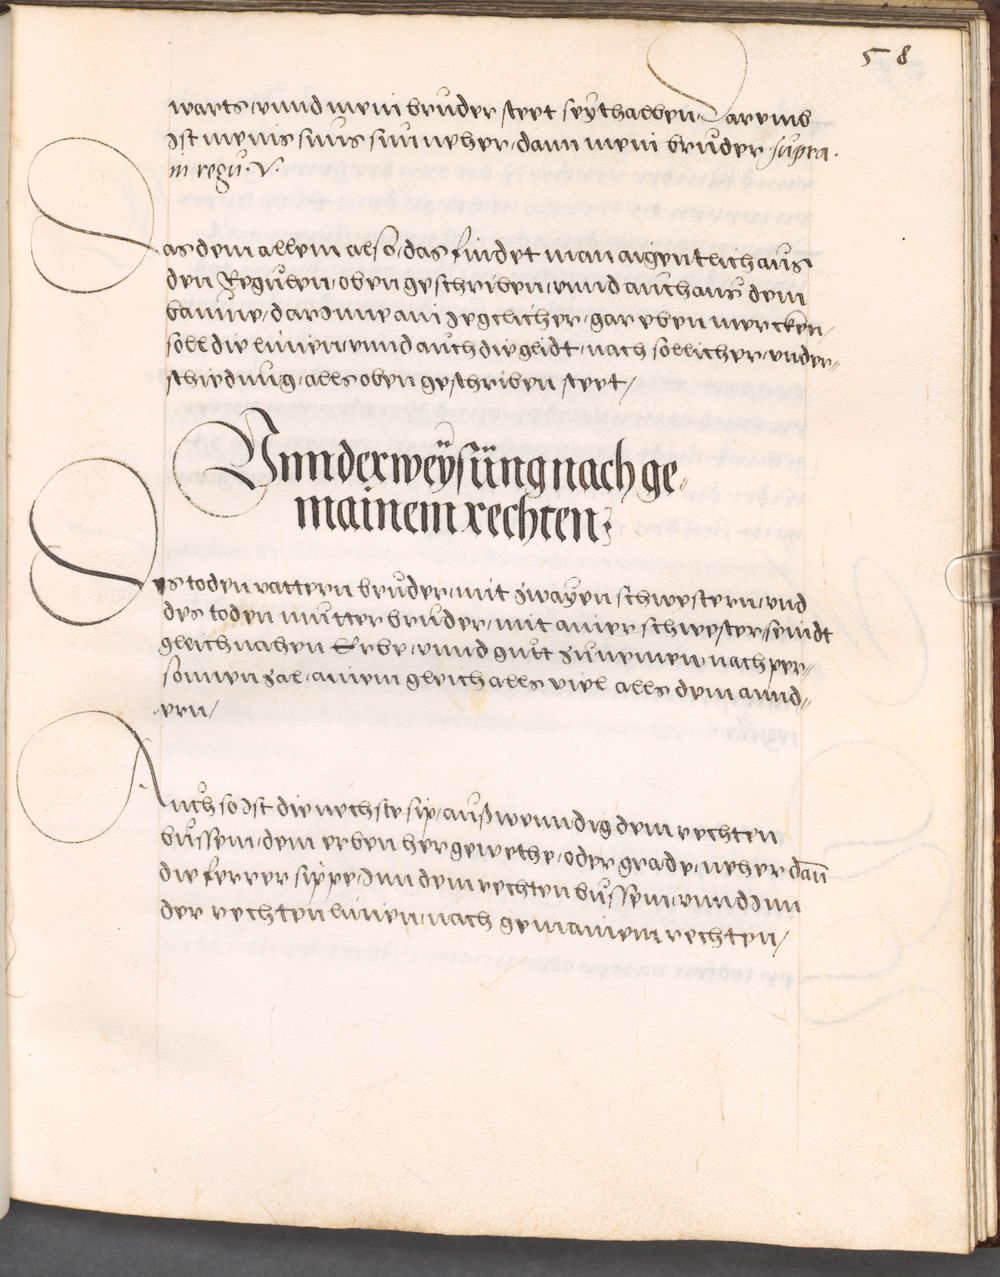 58
warts, vnnd mein bruder steet seythalben, Darumb
Ist meins suns sun neher, dann mein bruder supra.
in regu. V.
Das dem allem also, das findet man aigentlich aus
den Regulen, oben geschriben, vnnd auch aus dem
baume, dar Inne ain Jegclicher, gar eben mercken,
soll die linien, vnnd auch die glidt, nach sollicher, vnder-
schiednug, alls oben geschriben steet,
Vnnderweÿsüng nach ge-
mainem rechten,
Des toden vattern bruder, mit zwayen schwestern, vnd
des toden mutter bruder, mit ainer schwester, seindt
gleich nahen Erbe, vnnd gutt zu nemen, nach per-
sonnen zal, ainem gleich alls viel alls dem annd-
ern,
Auch so Ist die nechste sip, außwenndig dem rechten
bussem, dem erben hergewethe, oder grade, neher dañ
die ferrer sippe, Inn dem rechten bussem, vnnd Inn
der rechten linien, nach gemainem rechten,